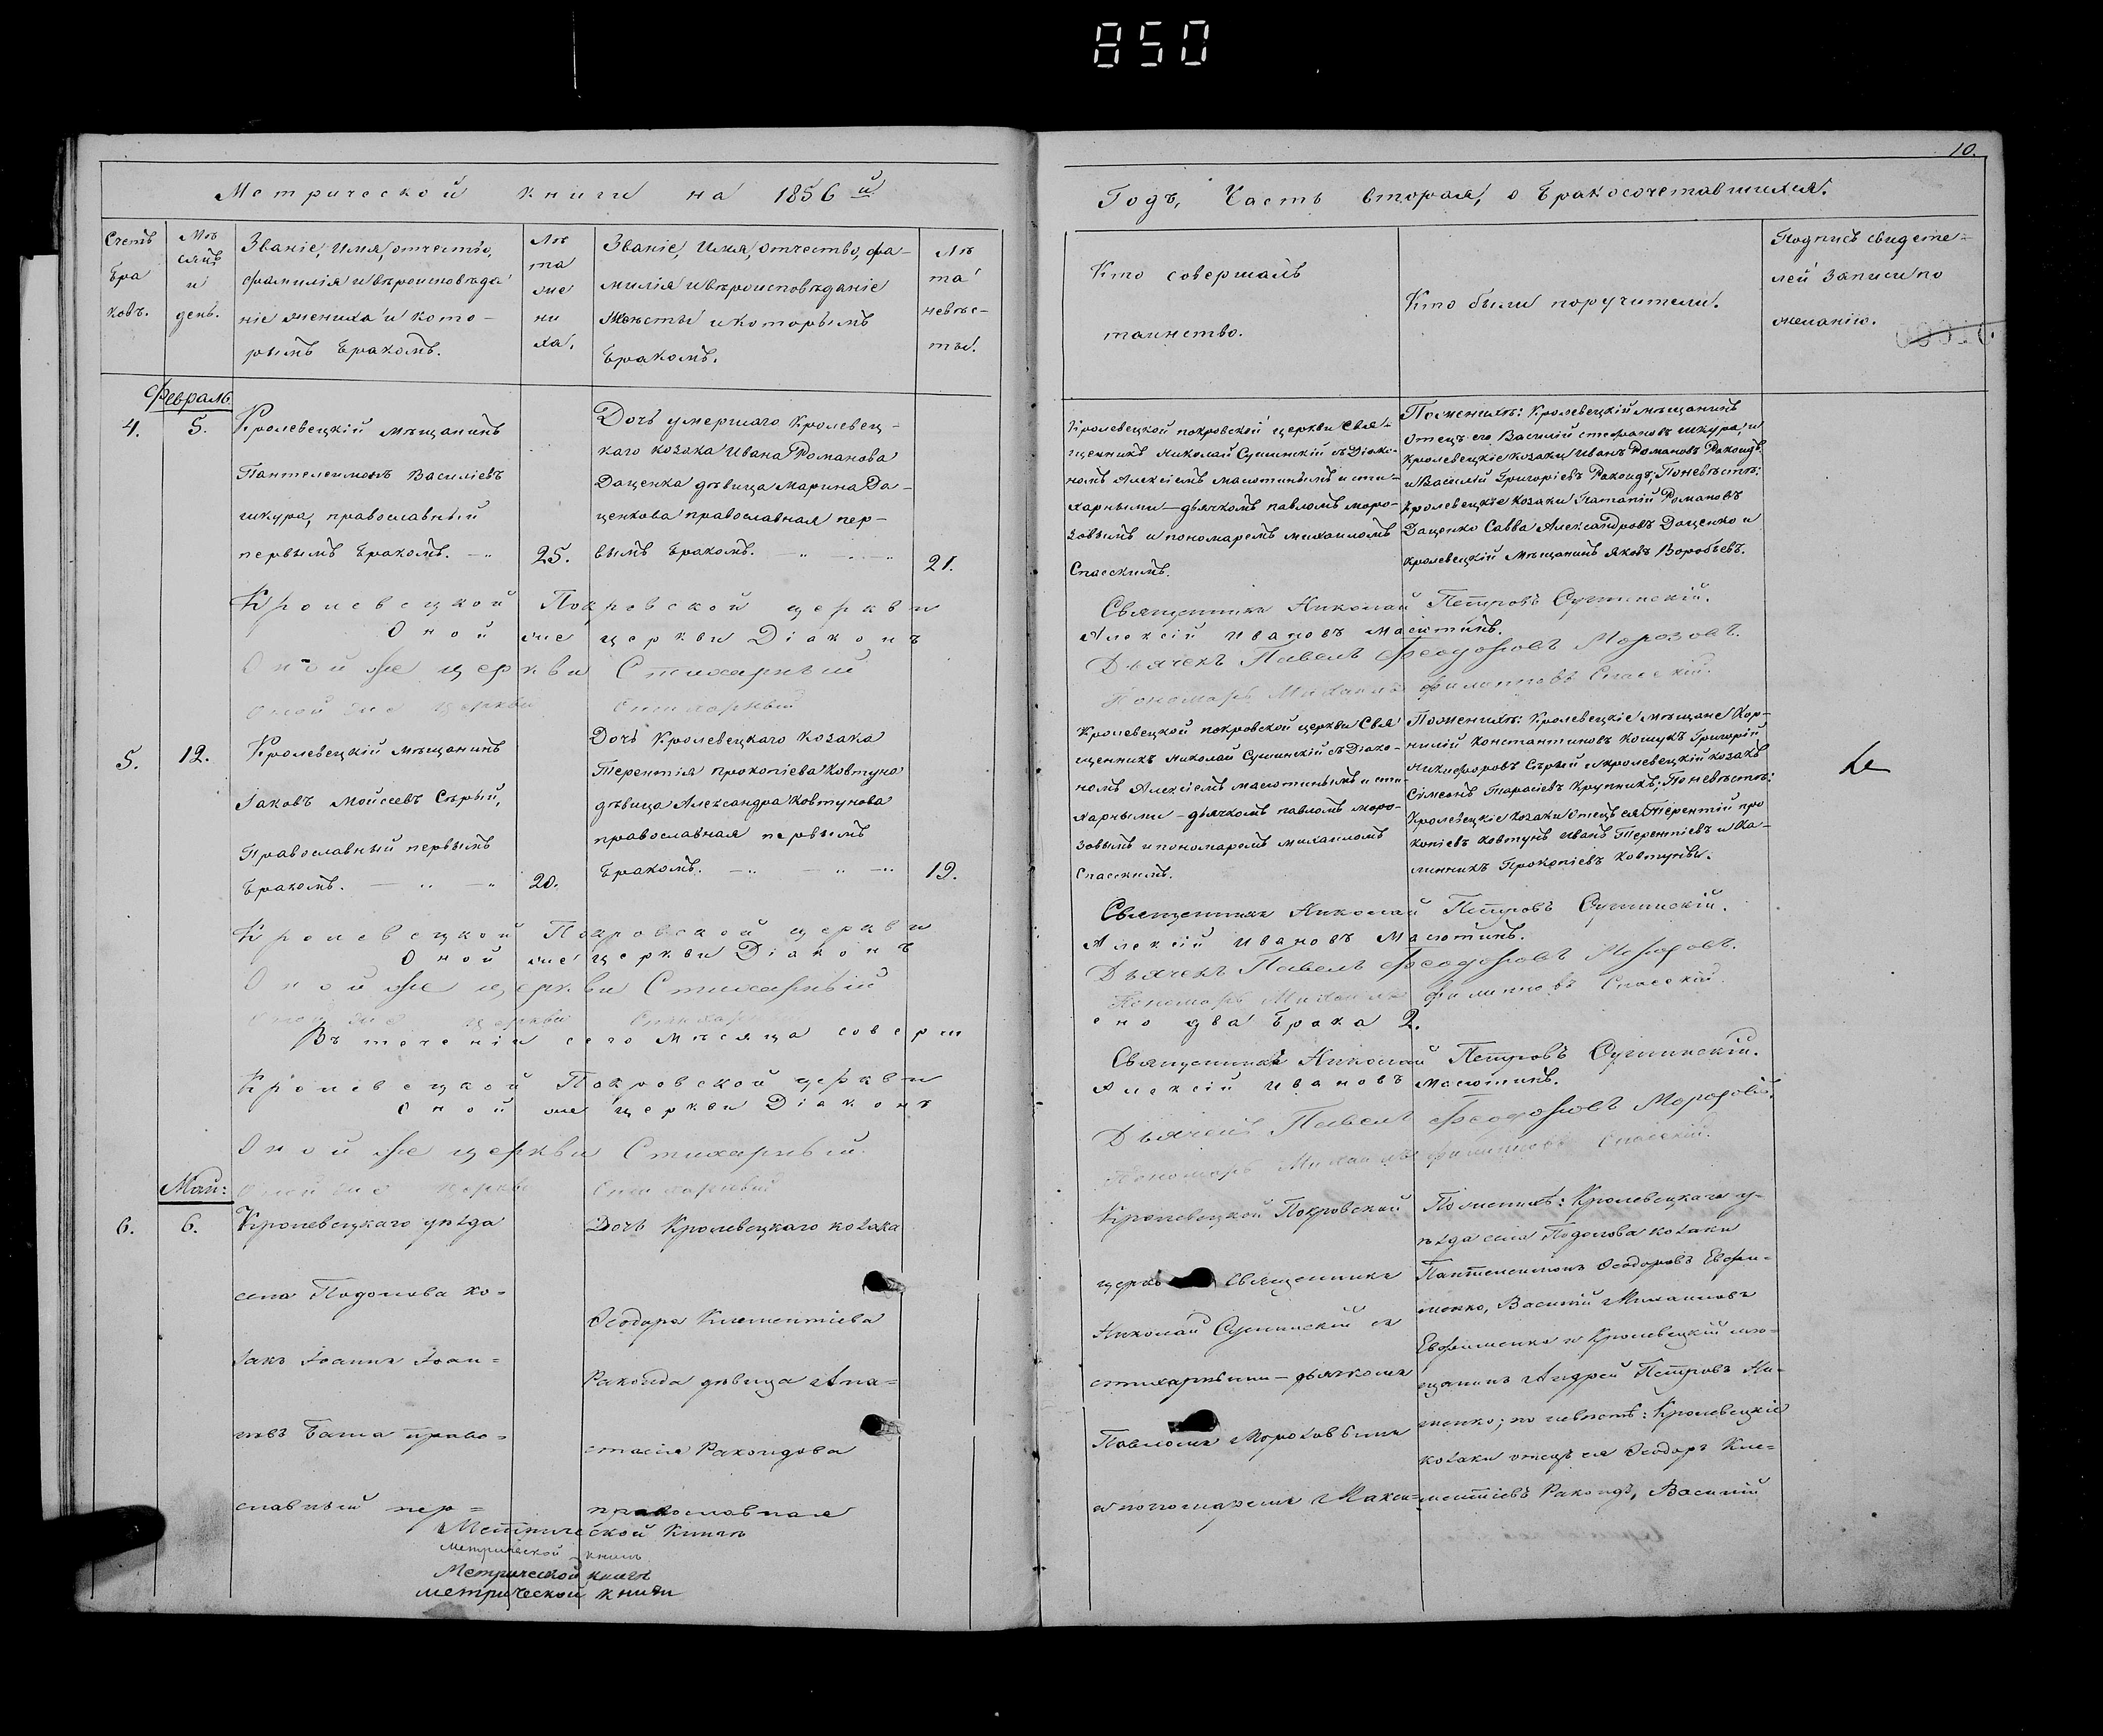 850
10.
Метрической книги на 1856й
Годъ, Часть вторая, о бракосочетавшихся.
Счетъ
бра
ковъ.
Мѣ
сяцъ
и
день.
Званіе, Имя, отчество,
фамилія и вѣроисповѣда
ніе жениха и кото-
рымъ бракомъ.
Лѣ
та
же
ни
ха.
Званіе, Имя, отчество, фа-
милія и вѣроисповѣданіе
невѣсты и которымъ
бракомъ.
Лѣ
та
невѣс-
ты.
Кто совершалъ
таинство.
Кто были поручители.
Подпись свидете-
лей записи по
желанію.
Февраль
4.
5.
Кролевецкій мѣщанинъ
Пантелеимонъ Василіевъ
шкура, православный
первымъ бракомъ.
25.
Дочь умершаго Кролевец-
каго козака Ивана Романова
Даценка дѣвица Марина Да-
ценкова православная пер-
вымъ бракомъ.
21.
Кролевецкой покровской церкви Свя-
щенникъ Николай Сушинскій съ Діако-
номъ Алексіемъ масютинымъ и сти-
харными - дьячкомъ павломъ моро-
зовымъ и пономаремъ михаиломъ
Спасскимъ.
По женихѣ: Кролевецкій мѣщанинъ
отецъ его Василій стефановъ шкура, и
кролевецкіе козаки Иванъ Романовъ Ракоидъ
и Василій Григоріевъ Ракоидъ, По невѣстѣ:
кролевецкіе козаки Ипатій Романовъ
Даценко Савва Александровъ Даценко и
кролевецкій мѣщанинъ Яковъ Воробьевъ.
Кролевецкой Покровской церкви Священникъ Николай Петровъ Сушинскій.
Оной же церкви Діаконъ Алексій Ивановъ Масютинъ.
Оной же церкви Стихарный Дьячекъ Павелъ Феодоровъ Морозовъ.
Оной же церкви Стихарный Пономарь Михаилъ Филипповъ Спасскій.
5.
12.
Кролевецкій мѣщанинъ
Іаковъ Мойсеевъ Сѣрый,
Православный первымъ
бракомъ.
20.
Дочь Кролевецкаго козака
Терентія прокопіева Ковтуна
дѣвица Александра Ковтунова
православная первымъ
бракомъ.
19.
Кролевецкой покровской церкви Свя
щенникъ Николай Сушинскій съ Діако-
номъ Алексіемъ масютинымъ и сти-
харными - дьячкомъ павломъ моро-
зовымъ и пономаремъ михаиломъ
Спасскимъ.
По женихѣ: Кролевецкіе мѣщане Кор-
нилій Константиновъ Кошукъ Григорій
Никифоровъ Сѣрый и кролевецкій козакъ
Симеонъ Тарасіевъ Крупникъ; По невѣстѣ:
Кролевецкіе козаки отецъ ея Терентій про
копіевъ Ковтунъ Иванъ Терентіевъ и Ка-
линникъ Прокопіевъ Ковтуны.
Кролевецкой Покровской церкви Священникъ Николай Петровъ Сушинскій.
Оной же церкви Діаконъ Алексій Ивановъ Масютинъ.
Оной же церкви Стихарный Дьячекъ Павелъ Феодоровъ Морозовъ.
Оной же церкви Стихарный Пономарь Михаилъ Филипповъ Спасскій.
Въ теченіи сего мѣсяца соверш ено два брака 2.
Кролевецкой Покровской церкви Священникъ Николай Петровъ Сушинскій.
Оной же церкви Діаконъ Алексій Ивановъ Масютинъ.
Оной же церкви Стихарный Дьячекъ Павелъ Феодоровъ Морозовъ.
Оной же церкви Стихарный Пономарь Михаилъ Филипповъ Спасскій.
Май:
6.
6.
Кролевецкаго уѣзда
села Подолова ко=
закъ Іоаннъ Іоан=
новъ Баша право=
славный пер=
Дочь Кролевецкаго козака
Ѳеодора Климентіева
Ракоида дѣвица Ана=
стасія Ракоидова
православная
Кролевецкой Покровской
церкви Священникъ
Николай Сушинскій съ
стихарными - дьячкомъ
Павломъ Морозовымъ
и пономаремъ
По женихѣ: Кролевецкаго у-
ѣзда села Подолова козаки
Пантелеимонъ Ѳеодоровъ Евфи-
менко, Василій Михаиловъ
Евфименко и Кролевецкій мѣ-
щанинъ Андрей Петровъ
по невѣстѣ: Кролевецкіе
козаки отецъ ея Ѳеодоръ Кли=
ментіевъ Ракоидъ, Василій
Метрической Книги
Метрической книги
Метрической книги
метрической книги